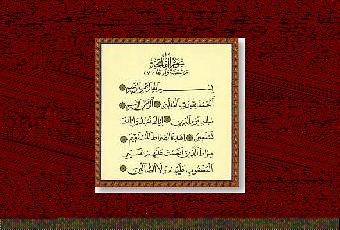 سورة الفاتحة
بسم الله الرحمن الرحيم
الحمد لله رب العالمين الرحمن الرحيم
ملك يوم الدين إياك نعبد وإياك
نستعين اهدنا الصراط المستقيم
صراط الذين أنعمت عليهم غير
المغضوب عليهم ولا الضالين